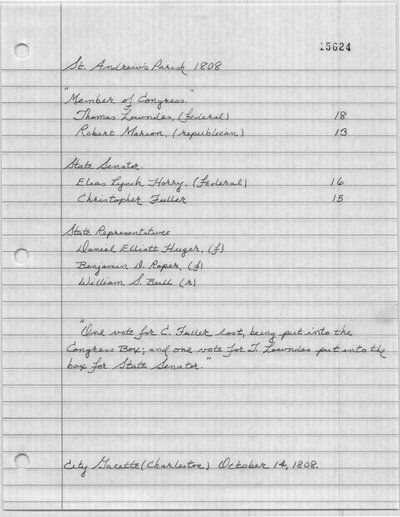 15624
St. Andrew's Parish 1808
"Member of Congress."
Thomas Lowndes, (federal) 18
Robert Marion, (republican) 13
State Senator.
Elias Lynch Horry, (Federal) 16
Christopher Fuller 15
State Representatives
Daniel Elliott Huger, (f)
Benjamin D. Roper, (f)
William S. Bull (r)
"One vote for C. Fuller lost, being put into the
Congress Box; and one vote for T. Lowndes put into the
box for State Senator."
City Gazette (Charleston) October 14, 1808.